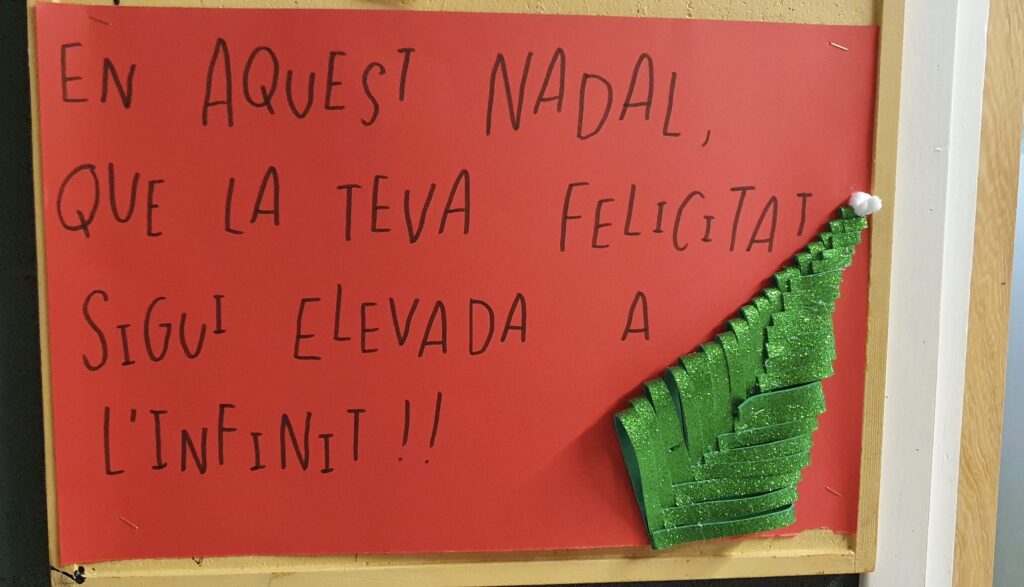 EN AQUEST NADAL,
QUE LA TEVA FELICITAT
SIGUI ELEVADA A
L'INFINIT!!